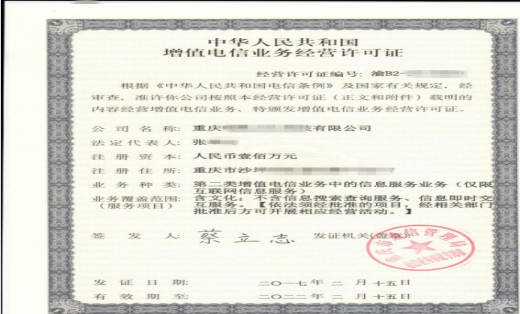 中华人民共和国
增值电信业务经营许可证
经营许可证编号: 渝B2-
根据《中华人民共和国电信条例》及国家有关规定, 经
审查, 准许你公司按照本经营许可证(正文和附件)载明的
内容经营增值电信业务。特颁发增值电信业务经营许可证。
公司名称: 重庆 技有限公司
法定代表人: 张
注册资本: 人民币壹佰万元
注册住所: 重庆市沙坪
业务种类: 第二类增值电信业务中的信息服务业务(仅限
互联网信息服务)
业务覆盖范围: 含文化; 不含信息搜索查询服务、信息即时交
(服务项目) 互服务。【依法须经批准的项目, 经相关部门
批准后方可开展相应经营活动。】
签发人: 蔡立志 发证机关(盖章):
发证日期: 二〇一七年二月十五日
有效期至: 二〇二二年二月十五日